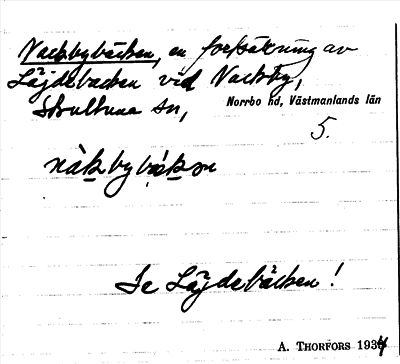 Nackbybäcken, en fortsättning av
Läjdebacken vid Nackby,
Skultuna sn, Norrbo hd, Västmanlands län
5.
nàkbybäkən
Se Läjdebäcken!
A. THORFORS 1934